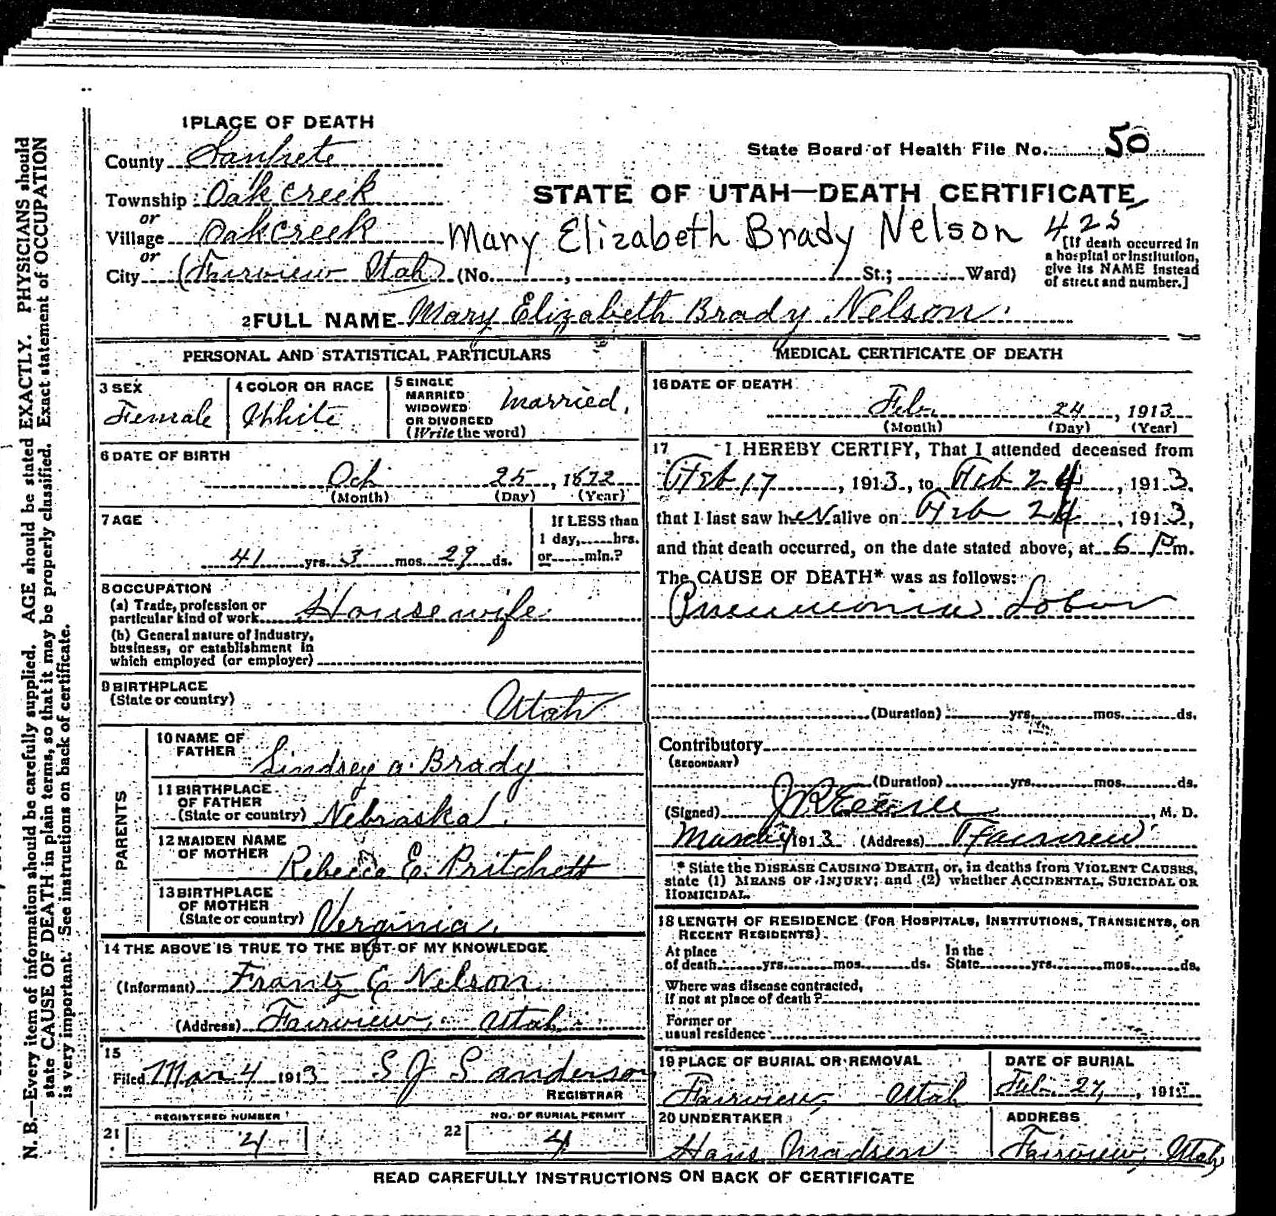 1 PLACE OF DEATH
County Sanpete
State Board of Health File No. 50
Township Oak creek
or
STATE OF UTAH—DEATH CERTIFICATE
Village Oakcreek
Mary Elizabeth Brady Nelson 425
or
City (Fairview Utah) (No. , St.; Ward)
[If death occurred in
a hospital or institution,
give its NAME instead
of street and number.]
2 FULL NAME Mary Elizabeth Brady Nelson.
PERSONAL AND STATISTICAL PARTICULARS
3 SEX
Female
4 COLOR OR RACE
White
5 SINGLE
MARRIED
WIDOWED
OR DIVORCED
(Write the word)
Married.
6 DATE OF BIRTH
Oct 25, 1872
(Month) (Day) (Year)
7 AGE
41 yrs. 3 mos. 29 ds.
If LESS than
1 day, hrs.
or min.?
8 OCCUPATION
(a) Trade, profession or
particular kind of work House wife
(b) General nature of industry,
business, or establishment in
which employed (or employer)
9 BIRTHPLACE
(State or country)
Utah
PARENTS
10 NAME OF
FATHER
Lindsey a. Brady
11 BIRTHPLACE
OF FATHER
(State or country) Nebraska.
12 MAIDEN NAME
OF MOTHER
Rebecca E. Pritchett
13 BIRTHPLACE
OF MOTHER
(State or country) Verginia.
14 THE ABOVE IS TRUE TO THE BEST OF MY KNOWLEDGE
(Informant) Frantz C Nelson
(Address) Fairview, Utah
15
Filed Mar 4 1913 S J Sanderson
REGISTRAR
REGISTERED NUMBER
21 4
NO. OF BURIAL PERMIT
22 4
MEDICAL CERTIFICATE OF DEATH
16 DATE OF DEATH
Feb. 24, 1913
(Month) (Day) (Year)
17 I HEREBY CERTIFY, That I attended deceased from
Feb 17, 1913, to Feb 24, 1913,
that I last saw her alive on Feb 24, 1913,
and that death occurred, on the date stated above, at 6 P m.
The CAUSE OF DEATH* was as follows:
Pneumonia Lobar
(Duration) yrs. mos. ds.
Contributory
(SECONDARY)
(Duration) yrs. mos. ds.
(Signed) , M. D.
1913 (Address) Fairview
* State the DISEASE CAUSING DEATH, or, in deaths from VIOLENT CAUSES,
state (1) MEANS OF INJURY; and (2) whether ACCIDENTAL, SUICIDAL OR
HOMICIDAL.
18 LENGTH OF RESIDENCE (FOR HOSPITALS, INSTITUTIONS, TRANSIENTS, OR
RECENT RESIDENTS)
At place
of death yrs. mos. ds.
In the
State yrs. mos. ds.
Where was disease contracted,
if not at place of death?
Former or
usual residence
19 PLACE OF BURIAL OR REMOVAL
Fairview, Utah
DATE OF BURIAL
Feb. 27, 191
20 UNDERTAKER
Hans Madsen
ADDRESS
Fairview, Utah,
READ CAREFULLY INSTRUCTIONS ON BACK OF CERTIFICATE
N. B.—Every item of information should be carefully supplied. AGE should be stated EXACTLY. PHYSICIANS should
state CAUSE OF DEATH in plain terms, so that it may be properly classified. Exact statement of OCCUPATION
is very important. See instructions on back of certificate.